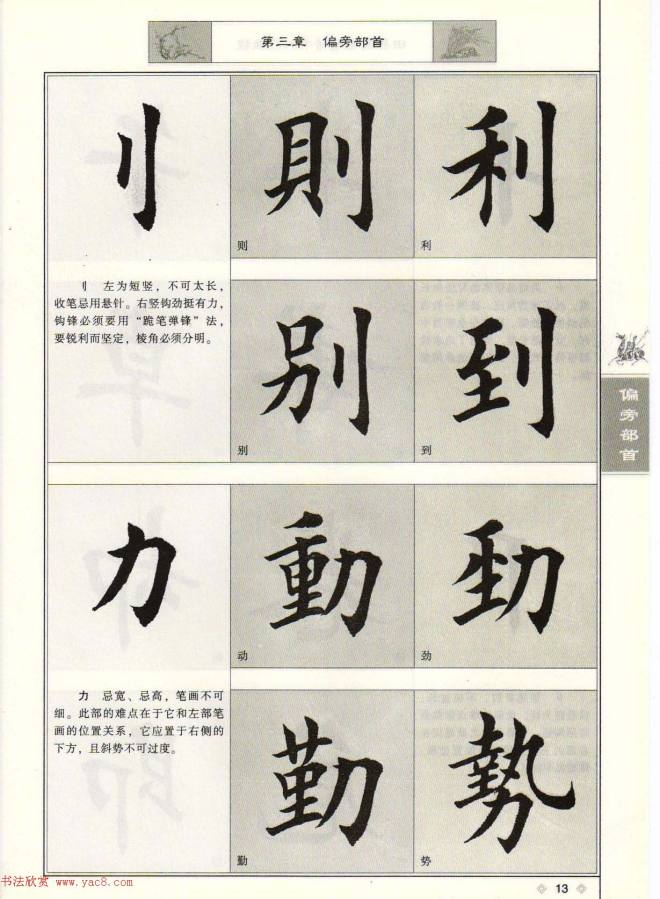 第三章 偏旁部首
刂
則
利
则
利
刂 左为短竖，不可太长，
收笔忌用悬针。右竖钩劲挺有力，
钩锋必须要用“跪笔弹锋”法，
要锐利而坚定，棱角必须分明。
别
到
别
到
偏旁部首
力
動
勁
动
劲
力 忌宽、忌高，笔画不可
细。此部的难点在于它和左部笔
画的位置关系，它应置于右侧的
下方，且斜势不可过度。
勤
勢
勤
势
书法欣赏 www.yac8.com
13